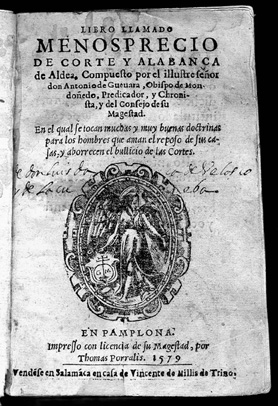 LIBRO LLAMADO
MENOSPRECIO
DE CORTE Y ALABANÇA
de Aldea, Compuesto por el illustre señor
don Antonio de Gueuara, Obispo de Mon-
doñedo, Predicador, y Chroni-
sta, y del Consejo de su
Magestad.
En el qual se tocan muchas y muy buenas doctrinas
para los hombres que aman el reposo de sus ca-
sas, y aborrecen el bullicio de las Cortes.
EN PAMPLONA.
Impresso con licencia de su Magestad, por
Thomas Porralis. 1579
Vendese en Salamāca en casa de Vincente de Millis de Trino.